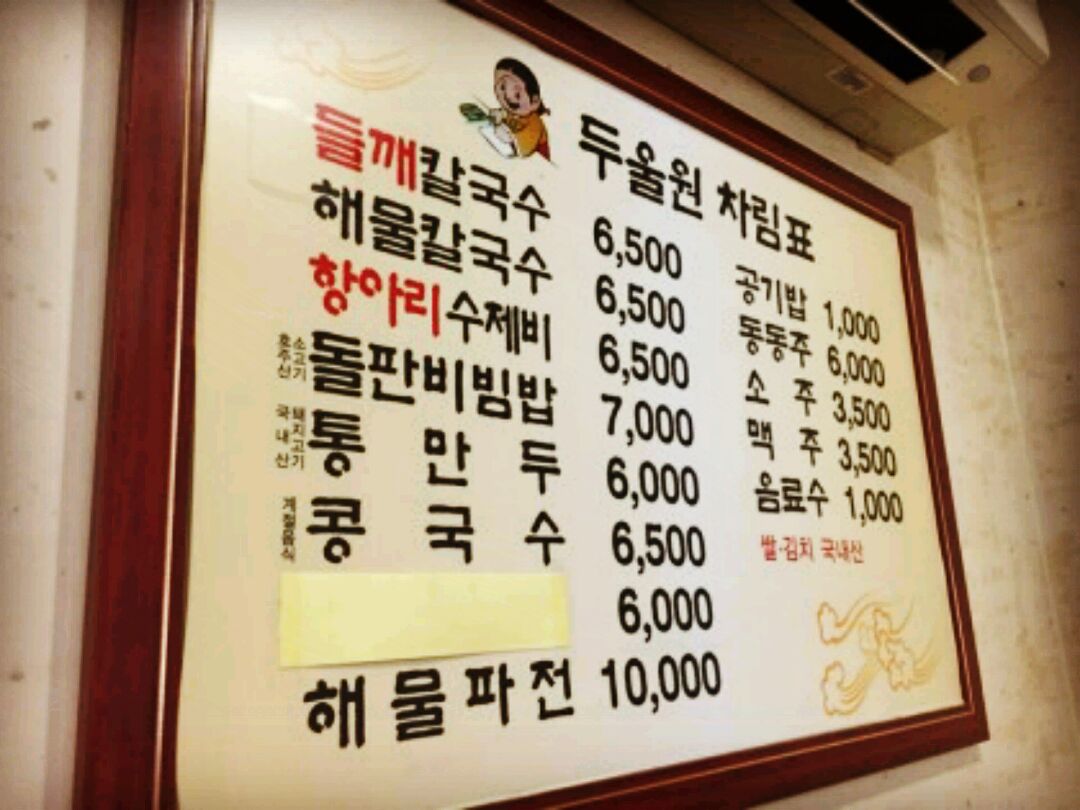 두울원 차림표
들깨칼국수 6,500
해물칼국수 6,500
항아리수제비 6,500
소고기 호주산 돌판비빔밥 7,000
돼지고기 국내산 통만두 6,000
계절음식 콩국수 6,500
6,000
해물파전 10,000
공기밥 1,000
동동주 6,000
소주 3,500
맥주 3,500
음료수 1,000
쌀·김치 국내산